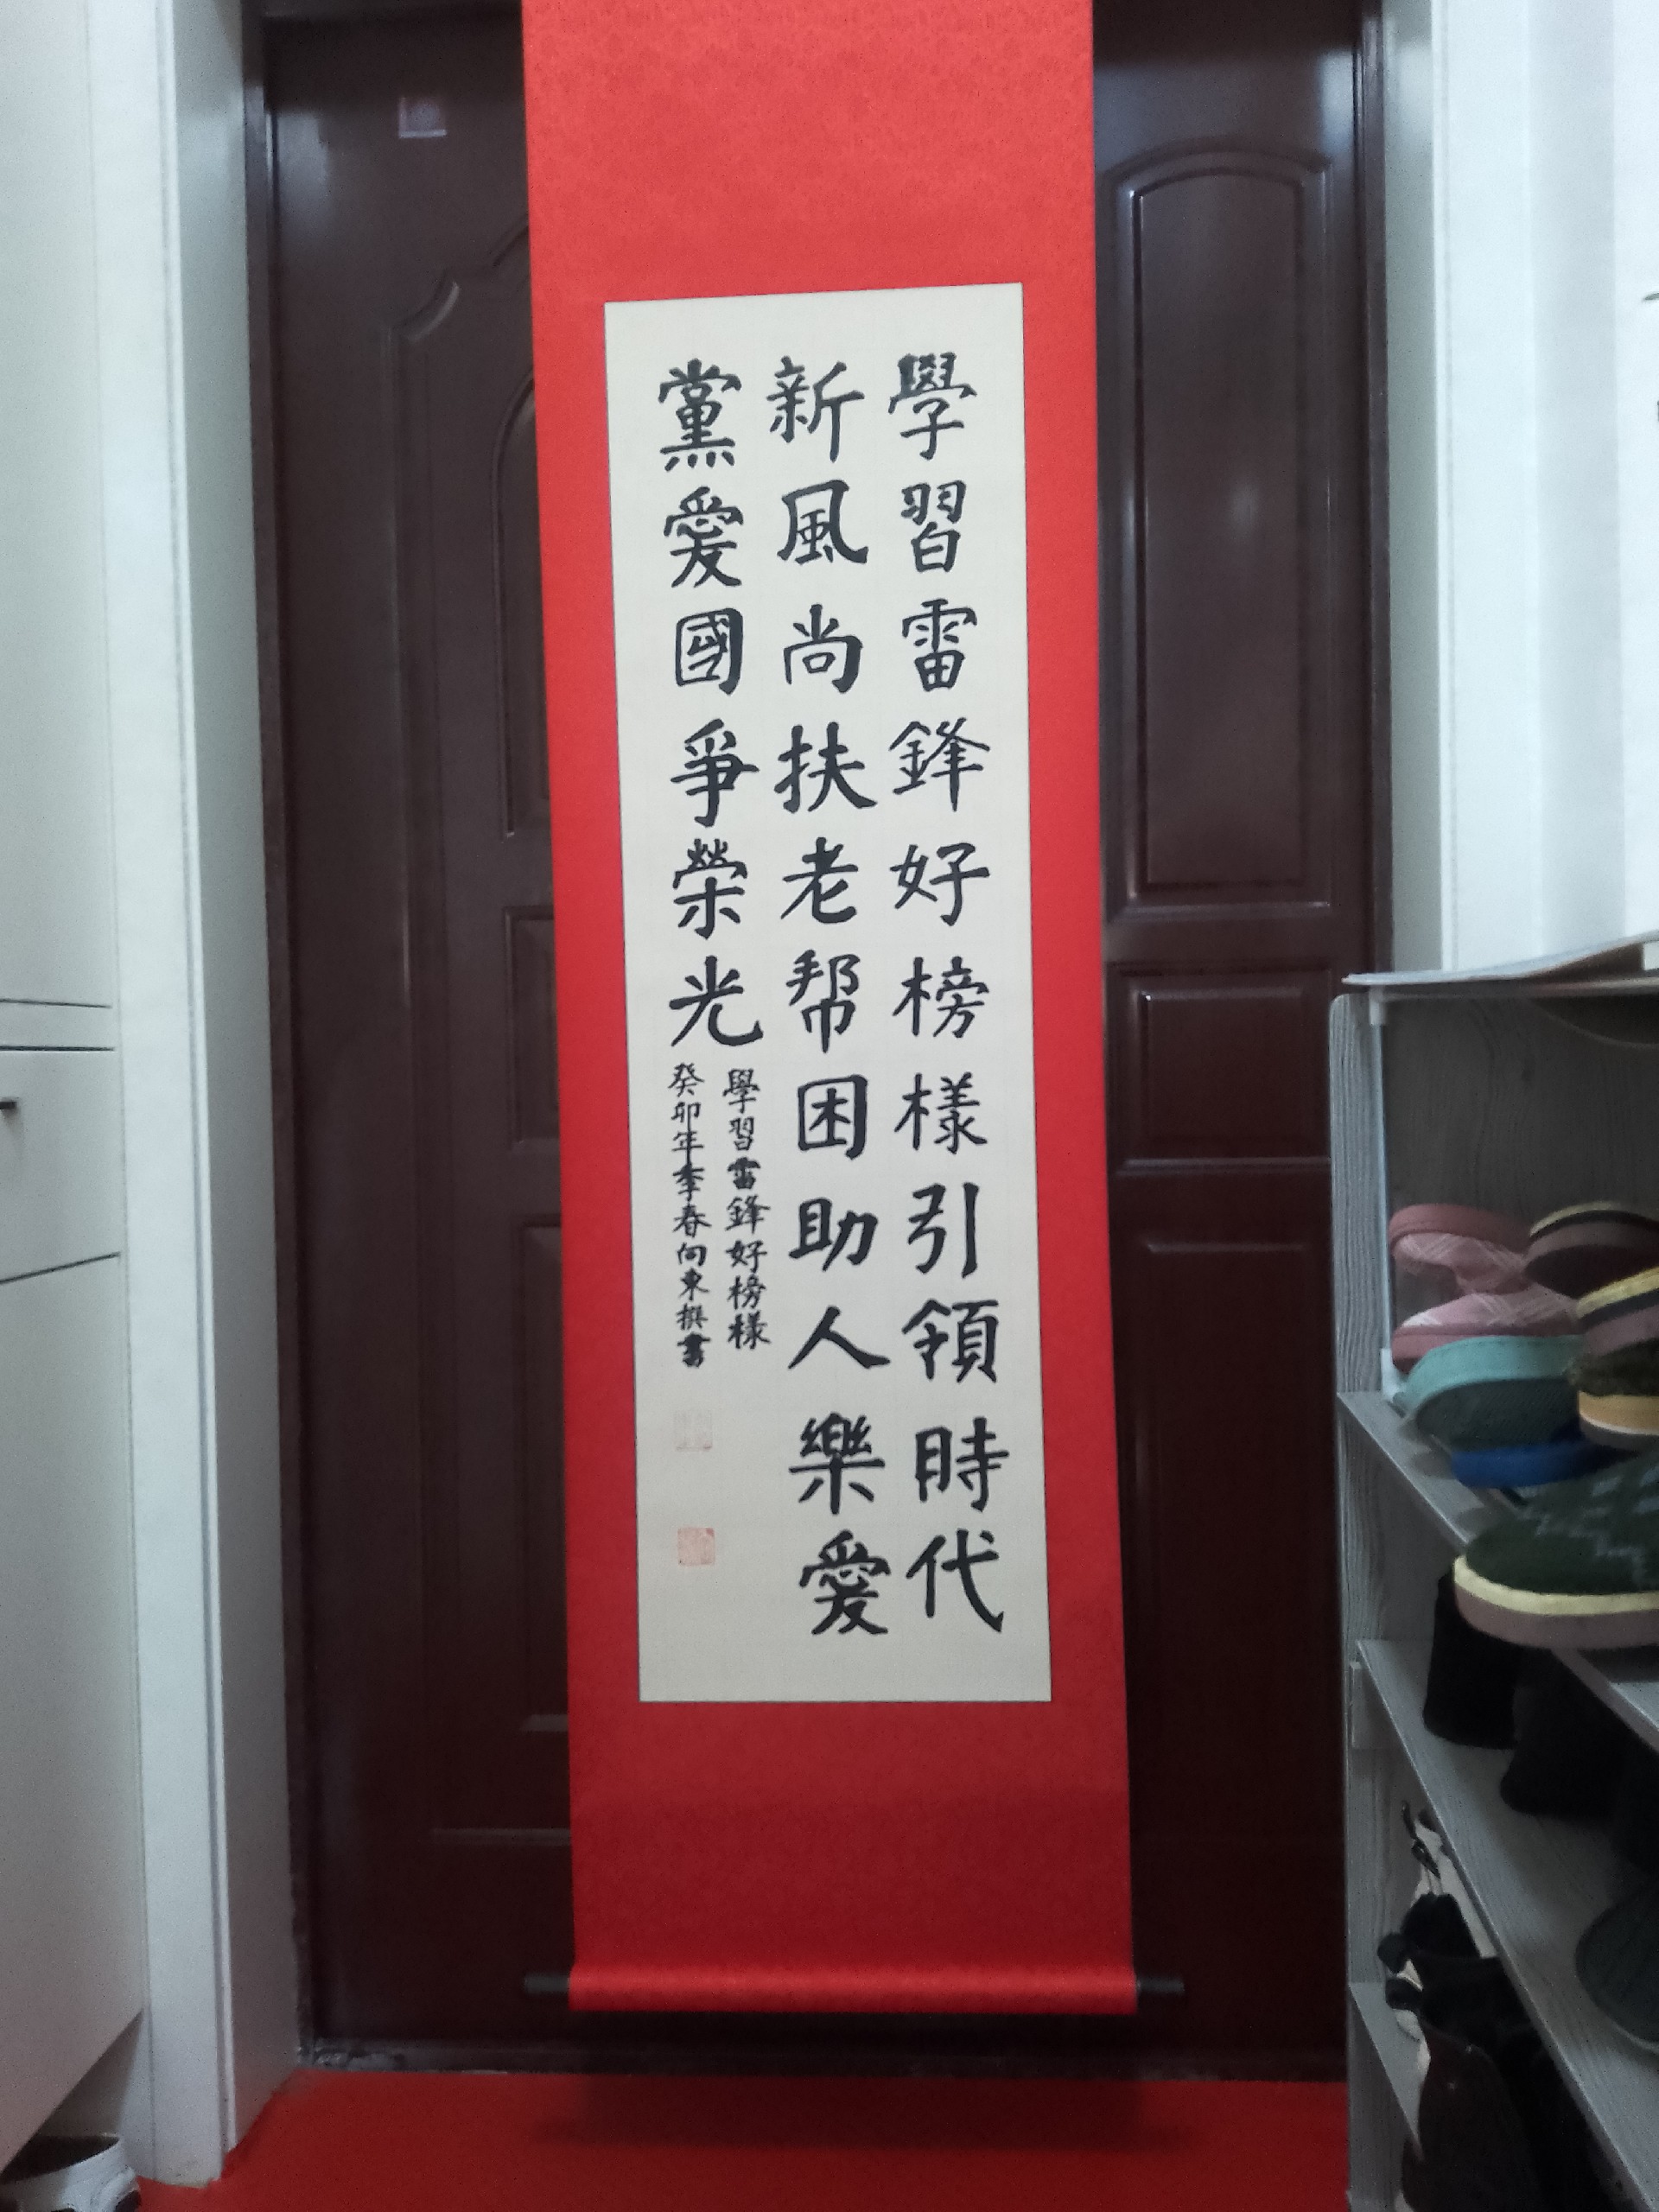 學習雷鋒好榜樣引領時代
新風尚扶老帮困助人樂愛
黨愛國爭榮光
學習雷鋒好榜樣
癸卯年季春向東撰書